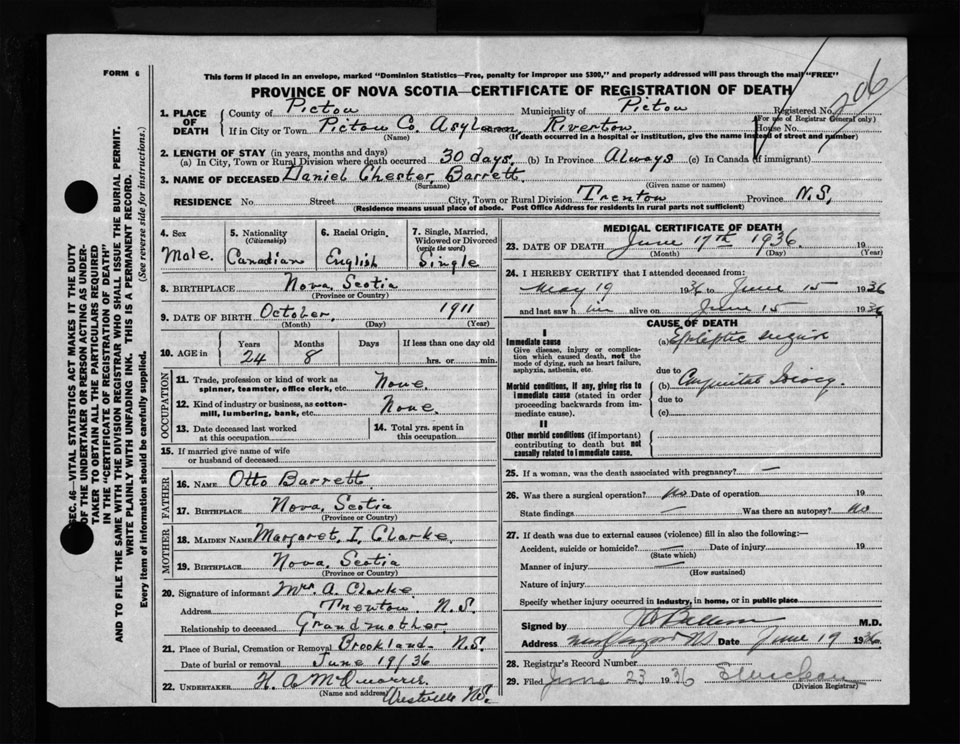 FORM 6
This form if placed in an envelope, marked "Dominion Statistics—Free, penalty for improper use $300," and properly addressed will pass through the mail "FREE"
PROVINCE OF NOVA SCOTIA—CERTIFICATE OF REGISTRATION OF DEATH
1. PLACE OF DEATH County of Pictou Municipality of Pictou Registered No. 206
(For use of Registrar General only)
If in City or Town Pictou Co. Asylum Riverton House No.
(Name) (If death occurred in a hospital or institution, give the name instead of street and number)
2. LENGTH OF STAY (in years, months and days)
(a) In City, Town or Rural Division where death occurred 30 days. (b) In Province Always (c) In Canada (if immigrant)
3. NAME OF DECEASED Daniel Chester, Barrett
(Surname) (Given name or names)
RESIDENCE No. Street City, Town or Rural Division Trenton Province N.S.
(Residence means usual place of abode. Post Office Address for residents in rural parts not sufficient)
4. Sex Male.
5. Nationality (Citizenship) Canadian
6. Racial Origin. English
7. Single, Married, Widowed or Divorced (write the word) Single
8. BIRTHPLACE Nova Scotia
(Province or Country)
9. DATE OF BIRTH October, 1911
(Month) (Day) (Year)
10. AGE in Years 24 Months 8 Days If less than one day old hrs. or min.
OCCUPATION
11. Trade, profession or kind of work as spinner, teamster, office clerk, etc. None
12. Kind of industry or business, as cotton-mill, lumbering, bank, etc. None.
13. Date deceased last worked at this occupation
14. Total yrs. spent in this occupation
15. If married give name of wife or husband of deceased
FATHER
16. NAME Otto Barrett
17. BIRTHPLACE Nova, Scotia
(Province or Country)
MOTHER
18. MAIDEN NAME Margaret, I, Clarke,
19. BIRTHPLACE Nova, Scotia
(Province or Country)
20. Signature of informant Mrs A. Clarke
Address Trenton, N.S.
Relationship to deceased Grandmother
21. Place of Burial, Cremation or Removal Brookland N.S.
Date of burial or removal June 19/36
22. UNDERTAKER H. A McQuarrie
(Name and address) Westville N.S.
MEDICAL CERTIFICATE OF DEATH
23. DATE OF DEATH June 17th 1936. 19
(Month) (Day) (Year)
24. I HEREBY CERTIFY that I attended deceased from:
May 19 1936 to June 15 1936
and last saw him alive on June 15 1936
CAUSE OF DEATH
I
Immediate cause
Give disease, injury or complication which caused death, not the mode of dying, such as heart failure, asphyxia, asthenia, etc.
(a) Epileptic seizure
due to
Morbid conditions, if any, giving rise to immediate cause (stated in order proceeding backwards from immediate cause).
(b) Congenital Idiocy.
due to
(c)
II
Other morbid conditions (if important) contributing to death but not causally related to immediate cause.
25. If a woman, was the death associated with pregnancy? —
26. Was there a surgical operation? No Date of operation 19
State findings — Was there an autopsy? No
27. If death was due to external causes (violence) fill in also the following:—
Accident, suicide or homicide? — Date of injury 19
(State which)
Manner of injury —
(How sustained)
Nature of injury
Specify whether injury occurred in industry, in home, or in public place
Signed by M.D.
Address New Glasgow NS Date June 19 1936
28. Registrar's Record Number
29. Filed June 23 1936
(Division Registrar)
SEC. 46—VITAL STATISTICS ACT MAKES IT THE DUTY
OF THE UNDERTAKER OR PERSON ACTING AS UNDER-
TAKER TO OBTAIN ALL THE PARTICULARS REQUIRED
IN THE "CERTIFICATE OF REGISTRATION OF DEATH"
AND TO FILE THE SAME WITH THE DIVISION REGISTRAR WHO SHALL ISSUE THE BURIAL PERMIT.
WRITE PLAINLY WITH UNFADING INK. THIS IS A PERMANENT RECORD.
Every item of information should be carefully supplied. (See reverse side for instructions.)